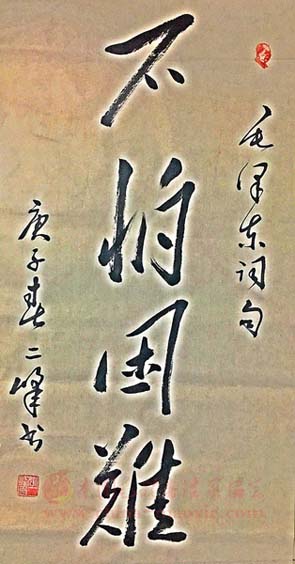 毛泽东词句
不怕困難
庚子春二峰书